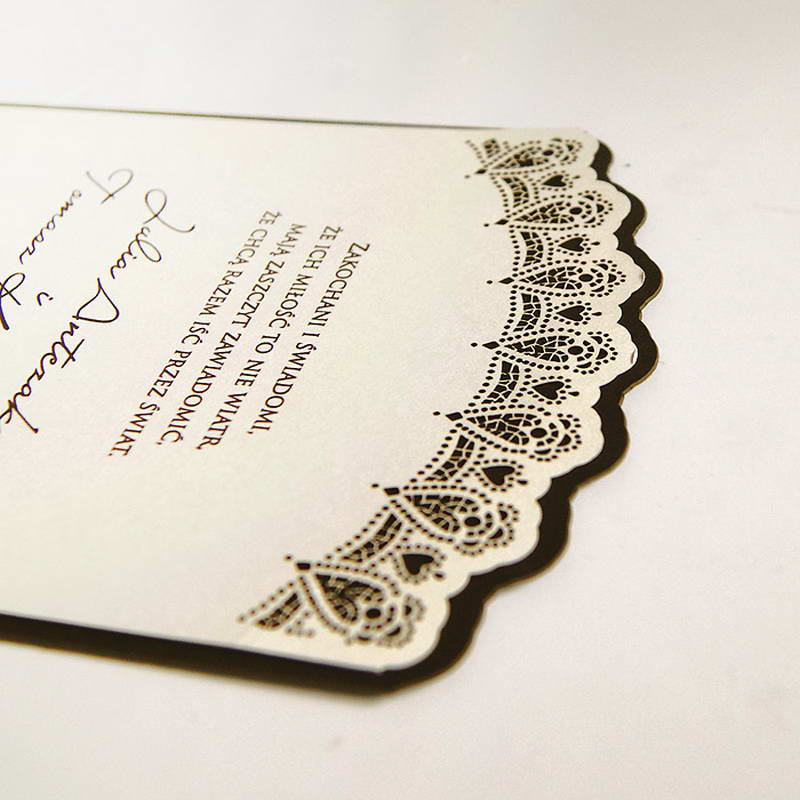 ZAKOCHANI I ŚWIADOMI,
ŻE ICH MIŁOŚĆ TO NIE WIATR,
MAJĄ ZASZCZYT ZAWIADOMIĆ,
ŻE CHCĄ RAZEM IŚĆ PRZEZ ŚWIAT.
Julia Antczak
i
Tomasz